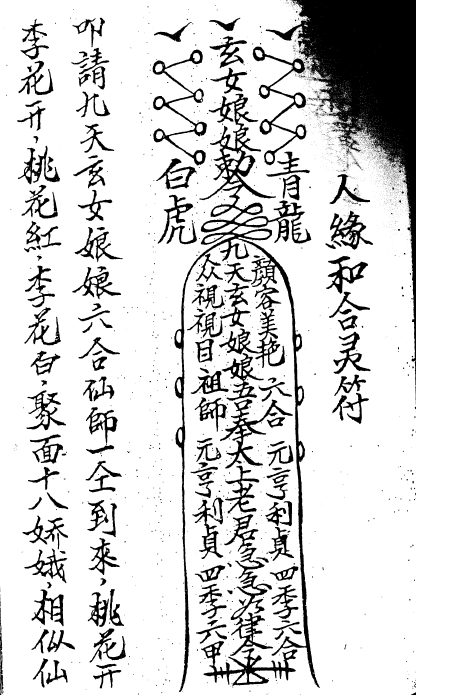 人緣和合灵符
玄女娘娘勅令
青龍
白虎
顏容美艳 六合 元亨利貞 四季六合
九天玄女娘娘吾奉太上老君急急如律令
众視視目 祖師 元亨利貞 四季六甲
叩請九天玄女娘娘六合仙師一仝到來,桃花开
李花开,桃花紅,李花白,聚面十八娇娥,相似仙